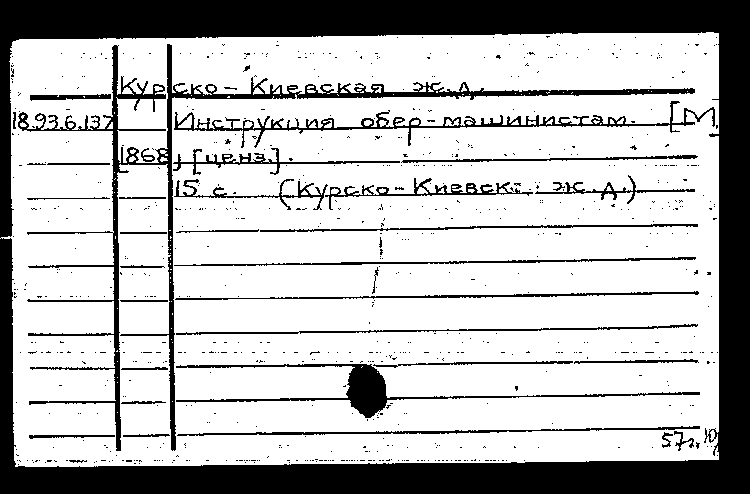 Курско-Киевская ж.д.
18.93.6.137 Инструкция обер-машинистам. [М.,
1868, [ценз.].
15 с. (Курско-Киевск. ж.д.)
57г.